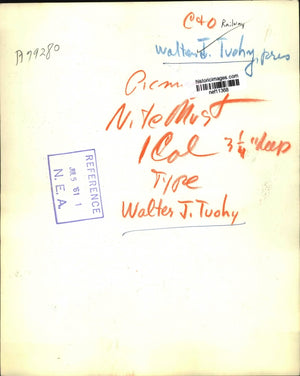 C+O Railway
A79280
Walter J. Tuohy, pres
historicimages.com
nef11368
Nite Must
1 Col 3 1/4" deep
Type
Walter J. Tuohy
REFERENCE
JUL 5 '61
N.E.A.